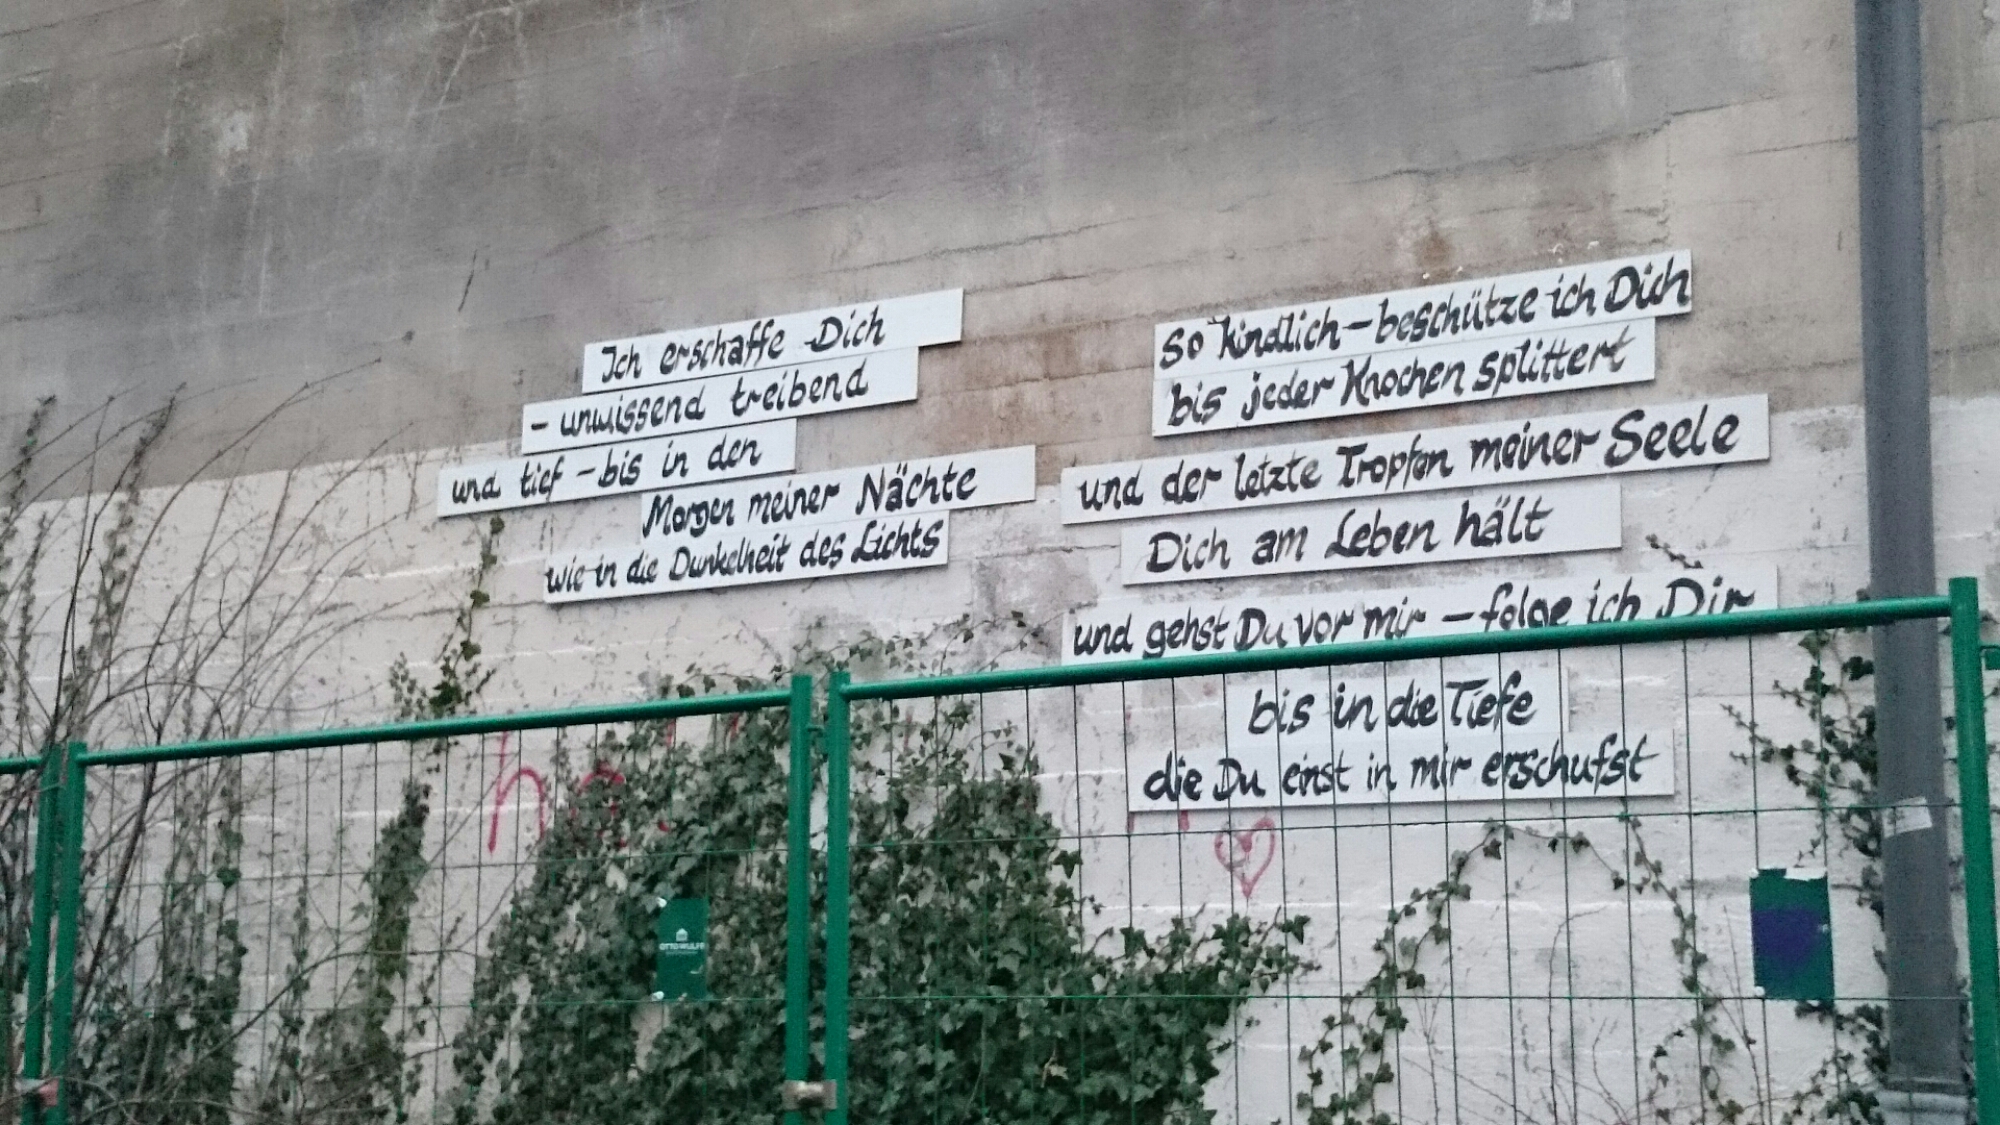 Ich erschaffe Dich
- unwissend treibend
und tief - bis in den
Morgen meiner Nächte
wie in die Dunkelheit des Lichts
So kindlich - beschütze ich Dich
bis jeder Knochen splittert
und der letzte Tropfen meiner Seele
Dich am Leben hält
und gehst Du vor mir - folge ich Dir
bis in die Tiefe
die Du einst in mir erschufst
OTTO WULFF